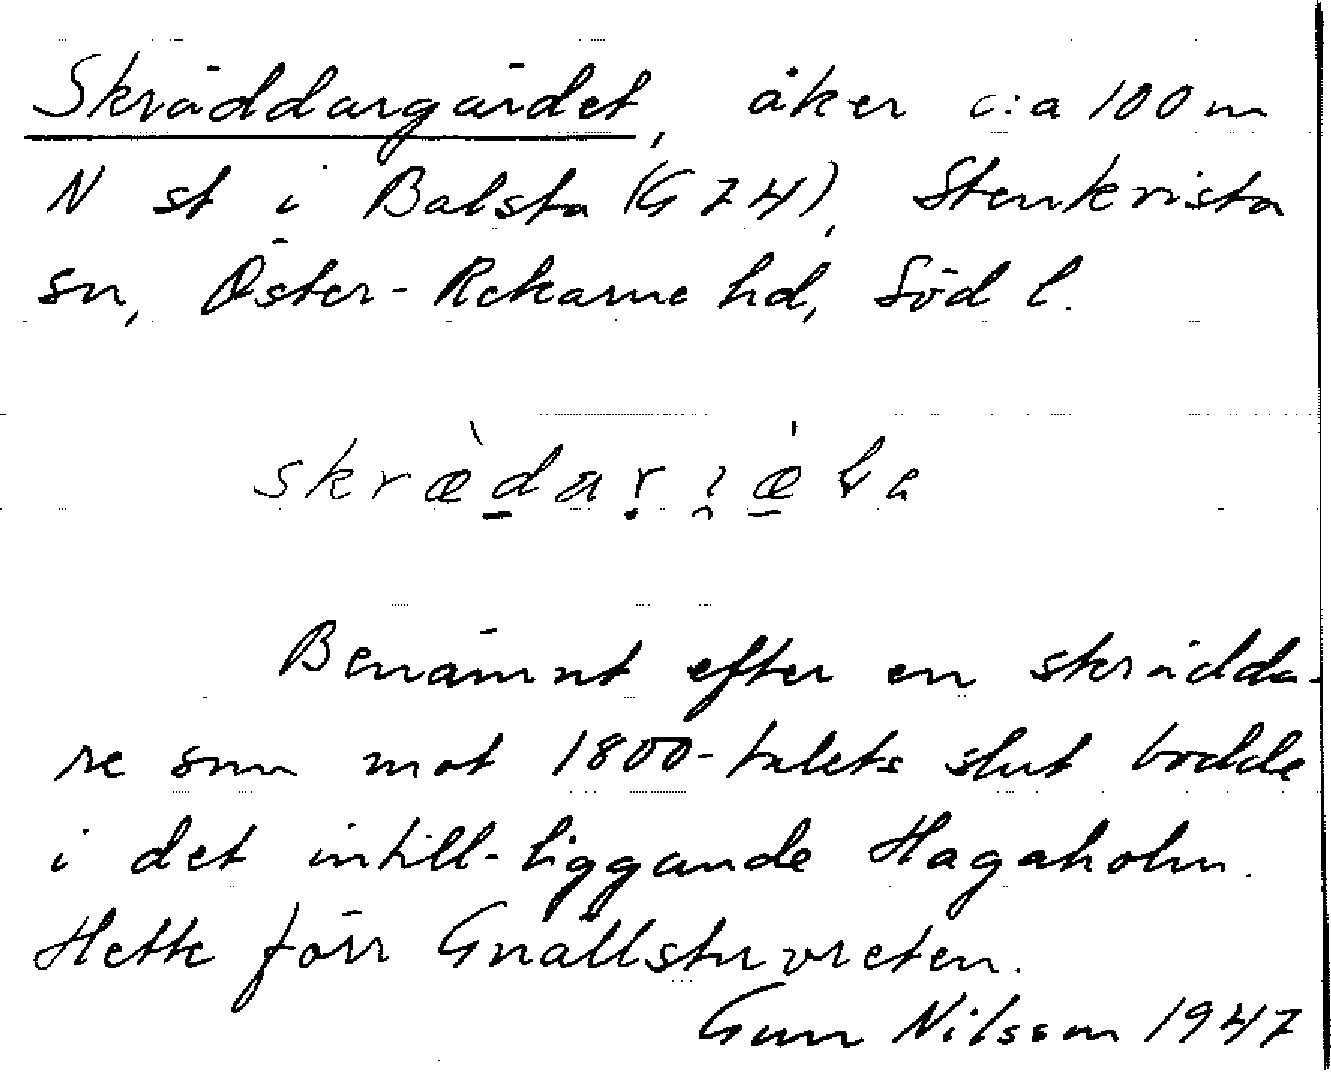 Skräddargärdet, åker c:a 100 m
N st i Balsta (G 74), Stenkvista
sn, Öster-Rekarne hd, Söd l.
Benämnt efter en skrädda-
re som mot 1800-talets slut bodde
i det intill-liggande Hagaholm.
Hette förr Gnällsturvreten.
Gun Nilsson 1947